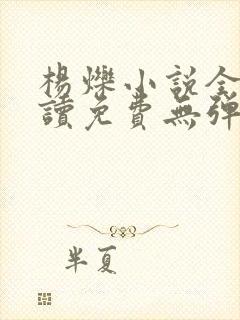 楊爍小説全
讀免費無彈
半夏